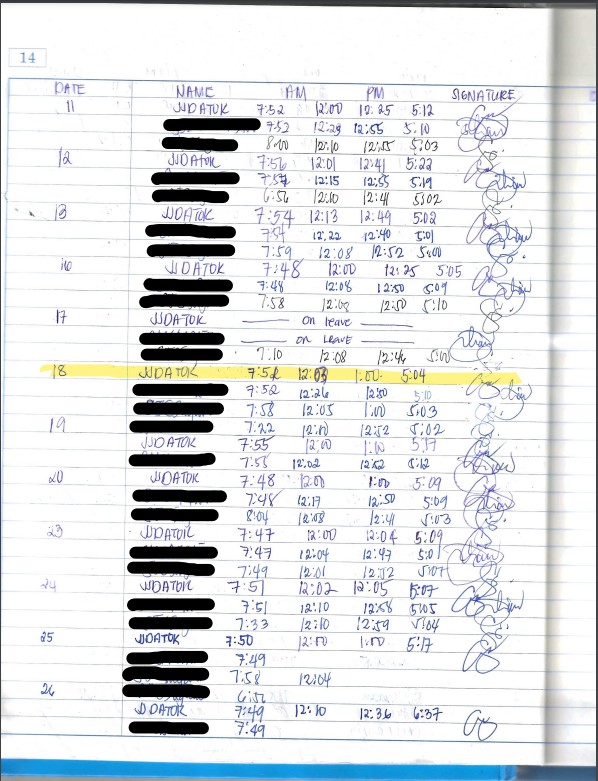 14
DATE NAME AM PM SIGNATURE
11 JJDATOK 7:52 12:00 12:25 5:12
7:52 12:29 12:55 5:10
8:00 12:10 12:55 5:03
12 JJDATOK 7:56 12:01 12:41 5:22
7:54 12:15 12:55 5:19
6:56 12:10 12:41 5:02
13 JJDATOK 7:54 12:13 12:49 5:02
7:51 12:22 12:40 5:01
7:59 12:08 12:52 5:00
16 JJDATOK 7:48 12:00 12:25 5:05
7:48 12:08 12:50 5:09
7:58 12:08 12:50 5:10
17 JJDATOK — on leave —
— on LEAVE —
7:10 12:08 12:46 5:00
18 JJDATOK 7:52 12:03 1:00 5:04
7:52 12:26 12:50 5:10
7:58 12:05 1:00 5:03
19 7:22 12:10 12:52 5:02
JJDATOK 7:55 12:00 1:00 5:17
7:55 12:02 12:52 5:12
20 JJDATOK 7:48 12:00 1:00 5:09
7:48 12:17 12:50 5:09
8:04 12:08 12:41 5:03
23 JJDATOK 7:47 12:00 12:04 5:09
7:47 12:04 12:47 5:01
7:49 12:01 12:52 5:07
24 JJDATOK 7:51 12:02 12:05 5:07
7:51 12:10 12:58 5:05
7:33 12:10 12:59 5:04
25 JJDATOK 7:50 12:00 1:00 5:17
7:49
7:58 12:04
26 6:56
JJDATOK 7:49 12:10 12:36 6:37
7:49